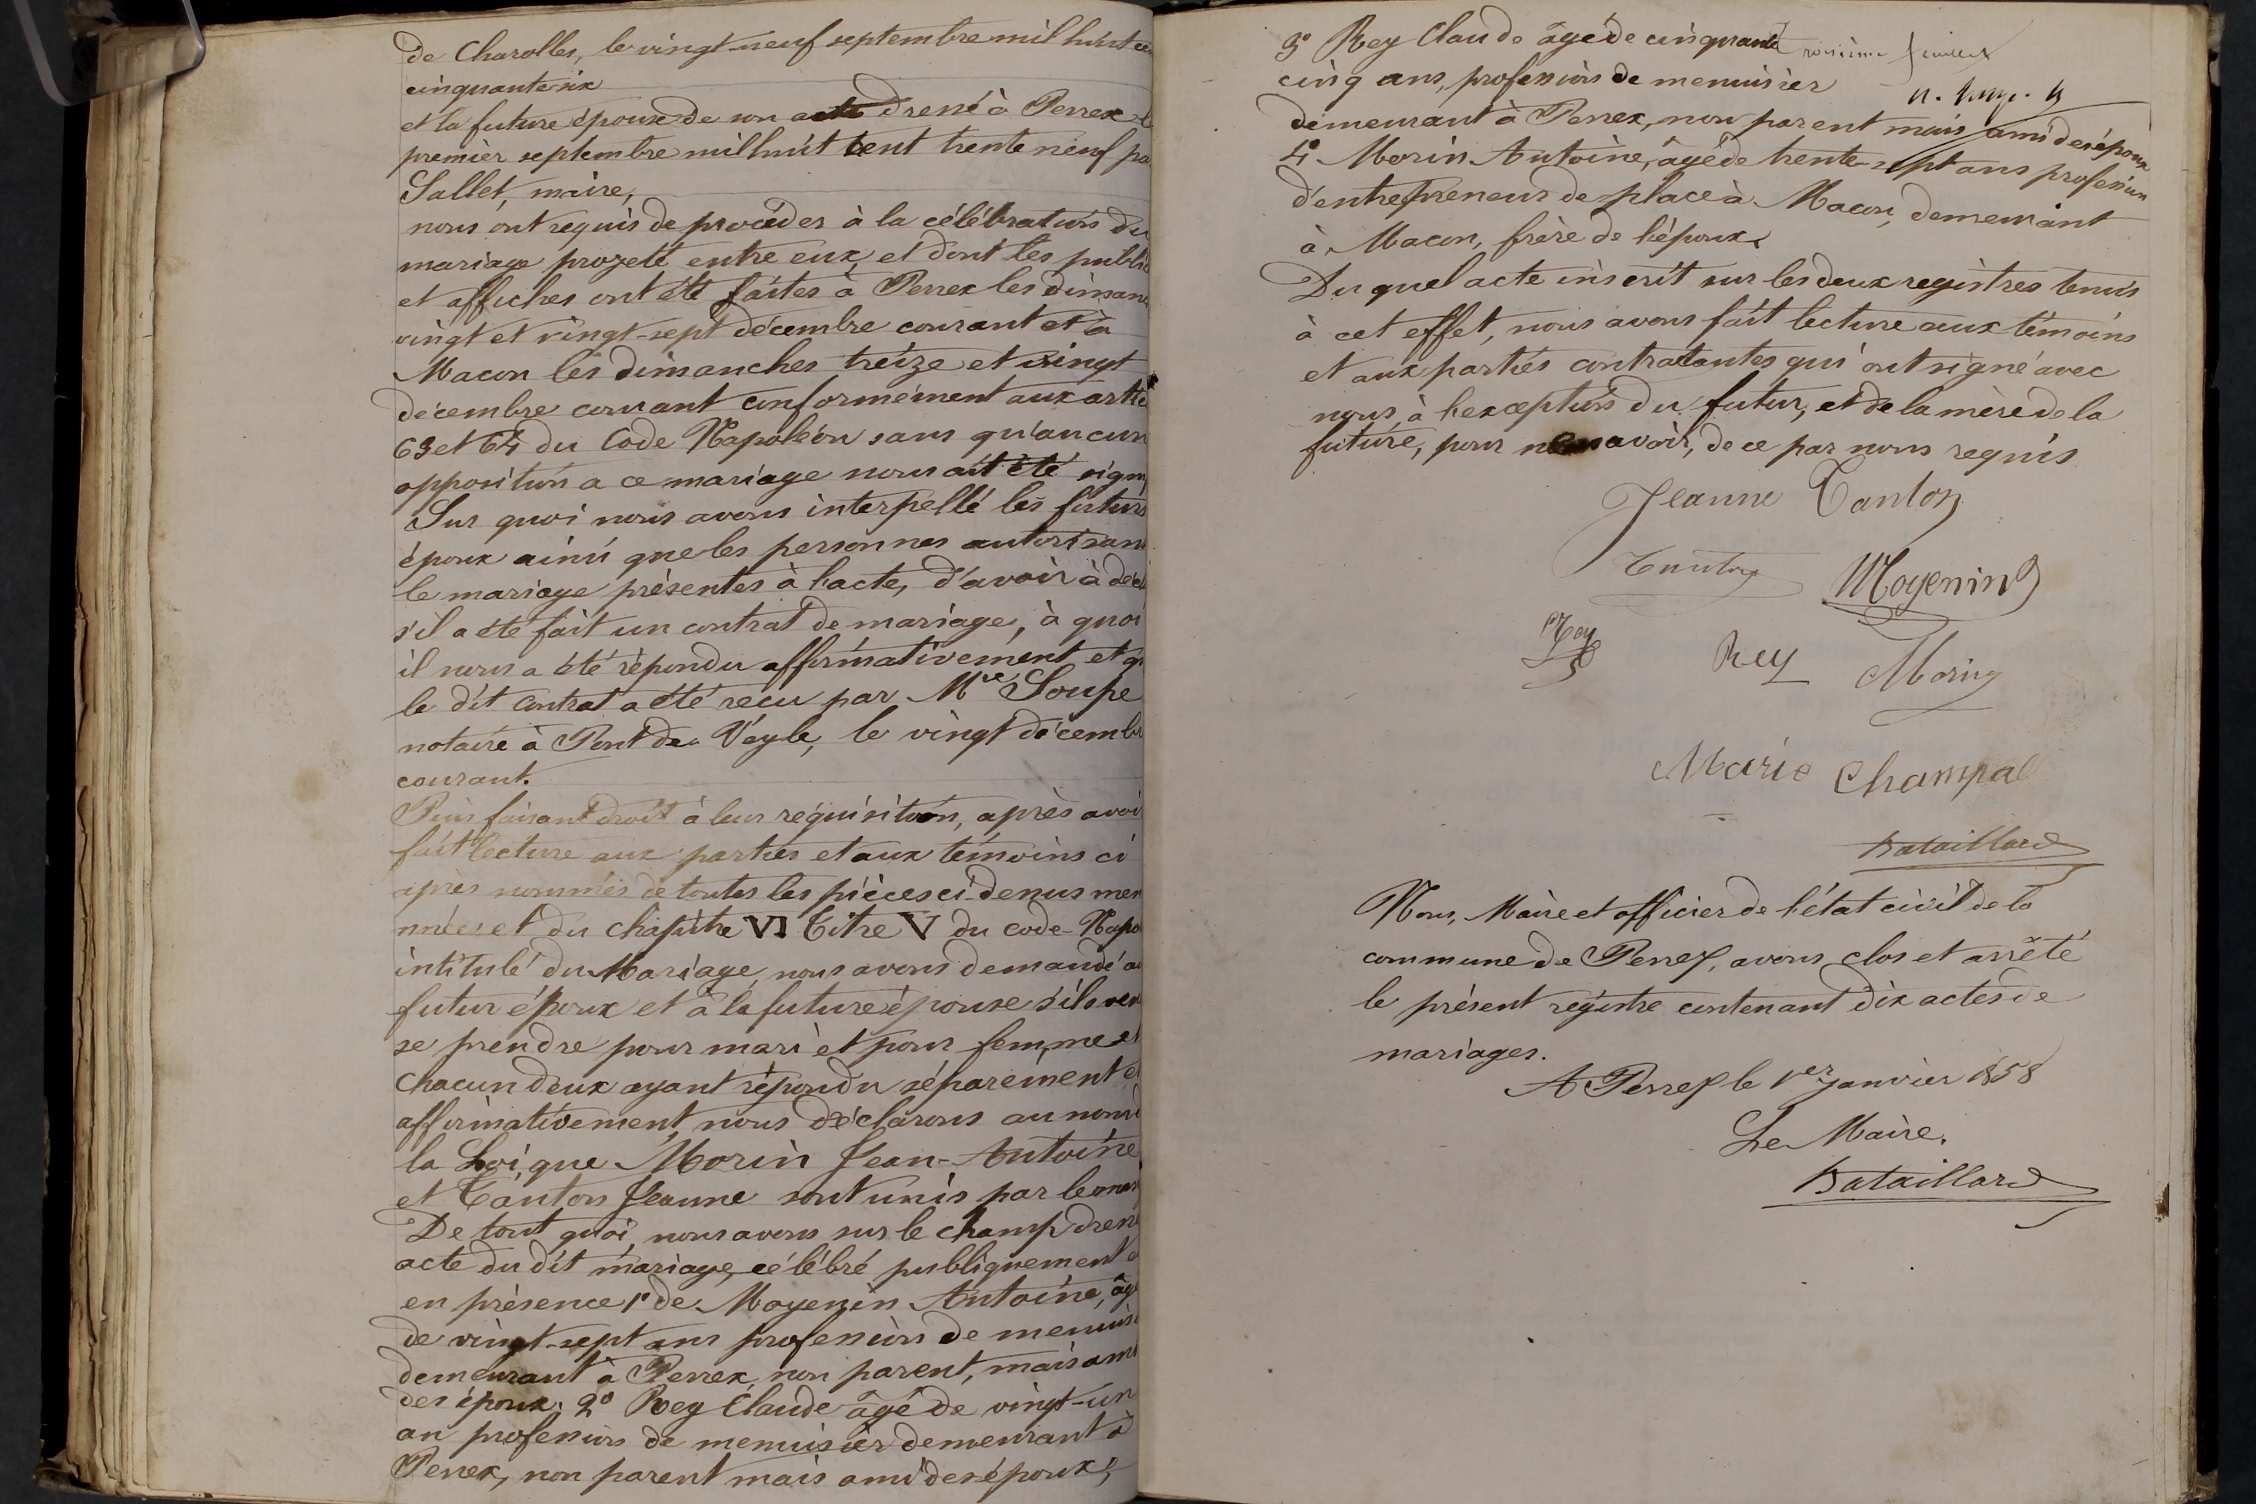 de Charolles, le vingt-neuf septembre mil huit ce
cinquante six
et la future épouse de son acte dressé à Perrex le
premier septembre mil huit cent trente neuf pa
Sallet, maire,
nous ont requis de procéder à la célébration du
mariage projeté entre eux et dont les public
et affiches ont été faites à Perrex les diman
vingt et vingt-sept décembre courant et à
Macon les dimanches treize et vingt
décembre courant conformément aux artic
63 et 64 du Code Napoléon sans qu'aucun
opposition a ce mariage nous ait été sign
Sur quoi nous avons interpellé les futurs
époux ainsi que les personnes autorisan
le mariage présentes à l'acte, d'avoir à déc
s'il a été fait un contrat de mariage, à quoi
il nous a été répondu affirmativement et q
le dit contrat a été recu par Mre Soupe
notaire à Pont de Veyle, le vingt décembr
courant.
Puis faisant droit à leur réquisition, après avoi
fait lecture aux parties et aux témoins ci
après nommés de toutes les pièces ci-dessus men
nnées et du chapitre VI Titre V du code Napo
intitulé du Mariage, nous avons demandé a
futur époux et à la future épouse s'ils veu
se prendre pour mari et pour femme et
chacun deux ayant répondu séparément e
affirmativement, nous déclarons au nom d
la Loi, que Morin Jean-Antoine
et Tanton Jeanne sont unis par le mar
De tout quoi, nous avons sur le champ dressé
acte du dit mariage, célébré publiquement e
en présence 1° de Moyenin Antoine, âg
de vingt-sept ans profession de menuisi
demeurant à Perrex, non parent, mais ami
des époux. 2° Rey Claude âgé de vingt-un
an profession de menuisier demeurant à
Perrex, non parent mais ami des époux;
3° Rey Claude âgé de cinquante
cinq ans, profession de menuisier
demeurant à Perrex, non parent mais ami des époux
4° Morin Antoine, âgé de trente-sept ans profession
d'entrepreneur de place à Macon, demeurant
à Macon, frère de l'époux.
Du quel acte inscrit sur les deux registres tenus
à cet effet, nous avons fait lecture aux témoins
et aux parties contractantes qui ont signé avec
nous, à l'exception du futur, et de la mère de la
future, pour ne savoir, de ce par nous requis
Jeanne Tanton
Tanton Moyenin
Rey Rey Morin
Marie Champal
Bataillard
Nous, Maire et officier de l'état civil de la
commune de Perrex, avons clos et arrêté
le présent registre contenant dix actes de
mariages.
A Perrex le 1er janvier 1858
Le Maire.
Bataillard